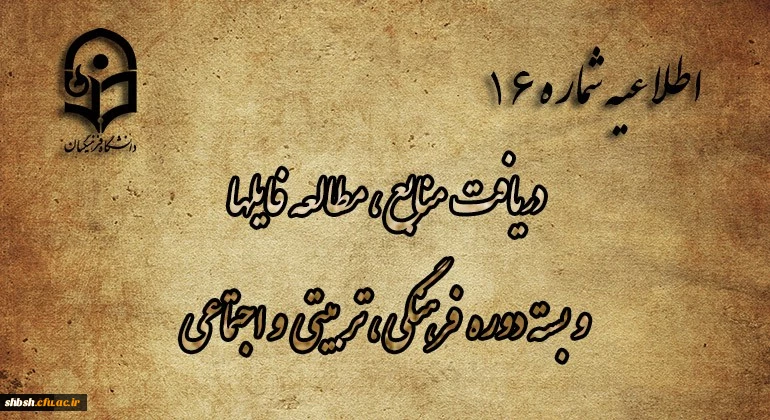 اطلاعیه شماره ۱۶
دانشگاه فرهنگیان
دریافت منابع ، مطالعه فایلها
و بسته دوره فرهنگی ، تربیتی و اجتماعی
shbsh.cfu.ac.ir